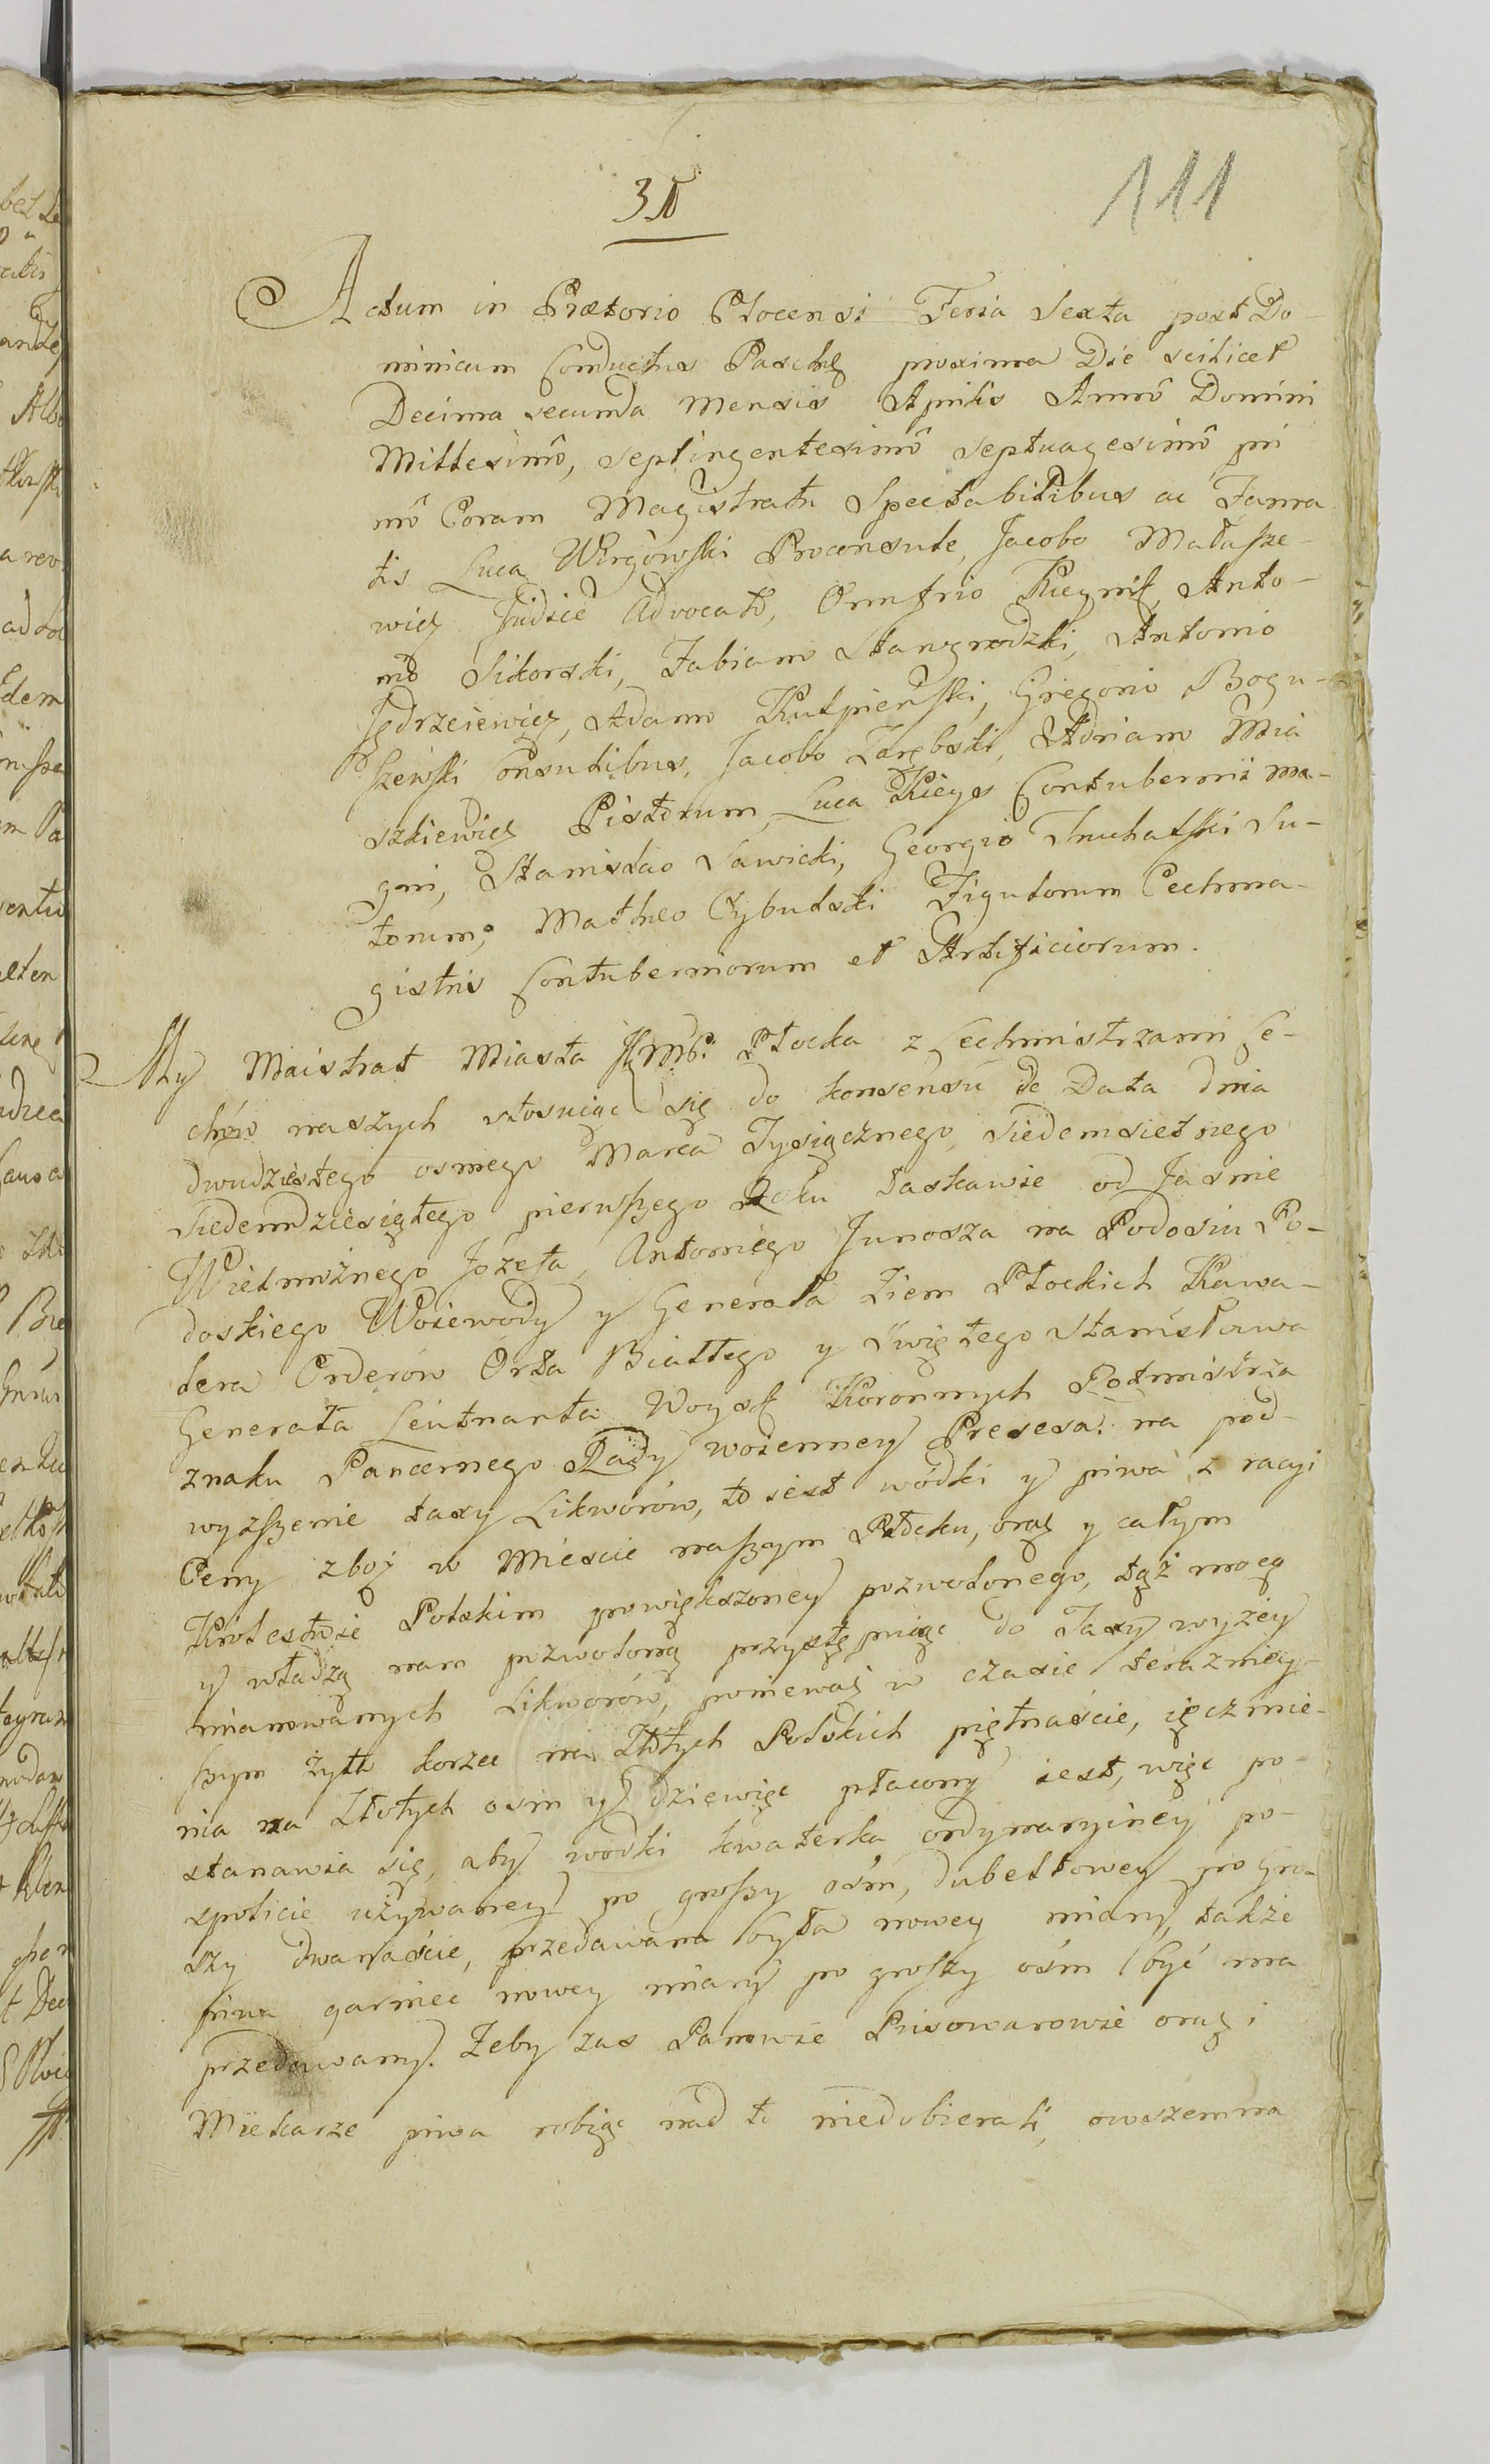 111
Actum in Prætorio Plocensi Feria Sexta post Do-
minicam Conductus Paschę proxima Die scilicet
Decima secunda Mensis Aprilis Annô Domini
Millesimô, septingentesimô septuagesimô pri
mô Coram Magistratu Spectabilibus ac Fama
tis Luca Wirgowski Proconsule, Jacobo Matusze-
wicz Judice Advocatô, Onufrio Anto-
niô Sikorski, Fabiano Stangrodzki, Antonio
Jędrzeiewicz, Adamo Kulpieński, Gregorio Bogu-
szewski Consulibus, Jacobo Zarębski, Adriano Mia
szkiewicz Pistorum, Luca Contubernii ma-
gni, Stanislao Sawicki, Georgio Su-
torum; Matheo Cybulski Figulorum Cechma-
gistris Contuberniorum et Artificiorum.
My Maistrat Miasta Płocka z Cechmistrzami Ce-
chów naszych stosuiąc się do konsensu de Data dnia
dwudziestego osmego Marca Tysiącznego, siedemsietnego
siedemdziesiątego pierwszego Roku łaskawie od Jasnie
Wielmożnego Józefa, Antoniego Junosza na Podosiu Po-
doskiego Woiewody y Generała Ziem Płockich Kawa-
lera Orderów Orła Białłego y Swiętego Stanisława
Generała Leutnanta Woysk Koronnych Rotmistrza
znaku Pancernego Rady woienney Presesa: na pod-
wyzszenie taxy Likworów, to iest wódki y piwa z racyi
Ceny zboż w Miescie naszym Płocku, oraz y całym
Krolestwie Polskim powiększoney pozwolonego, tąż mocą
y władzą nam pozwoloną przystępuiąc do Taxy wyżey
mianowanych Likworów, poniewaz w czasie teraznie-
szym żyta korzec na Złotych Polskich piętnaście, ięczmie-
nia na Złotych osm y dziewięc płacony iest, więc po-
stanawia się, aby wodki kwaterka ordynaryiney po-
spolicie używaney po groszy ośm, dubeltowey po Gro-
szy dwanaście, przedawana była nowey miary, także
piwa garniec nowey miary po groszy ośm być ma
przedawany. Zeby zas Panowie Piwowarowie oraz i
Mielcarze piwa robiąc nad to niedobierali, owszem na